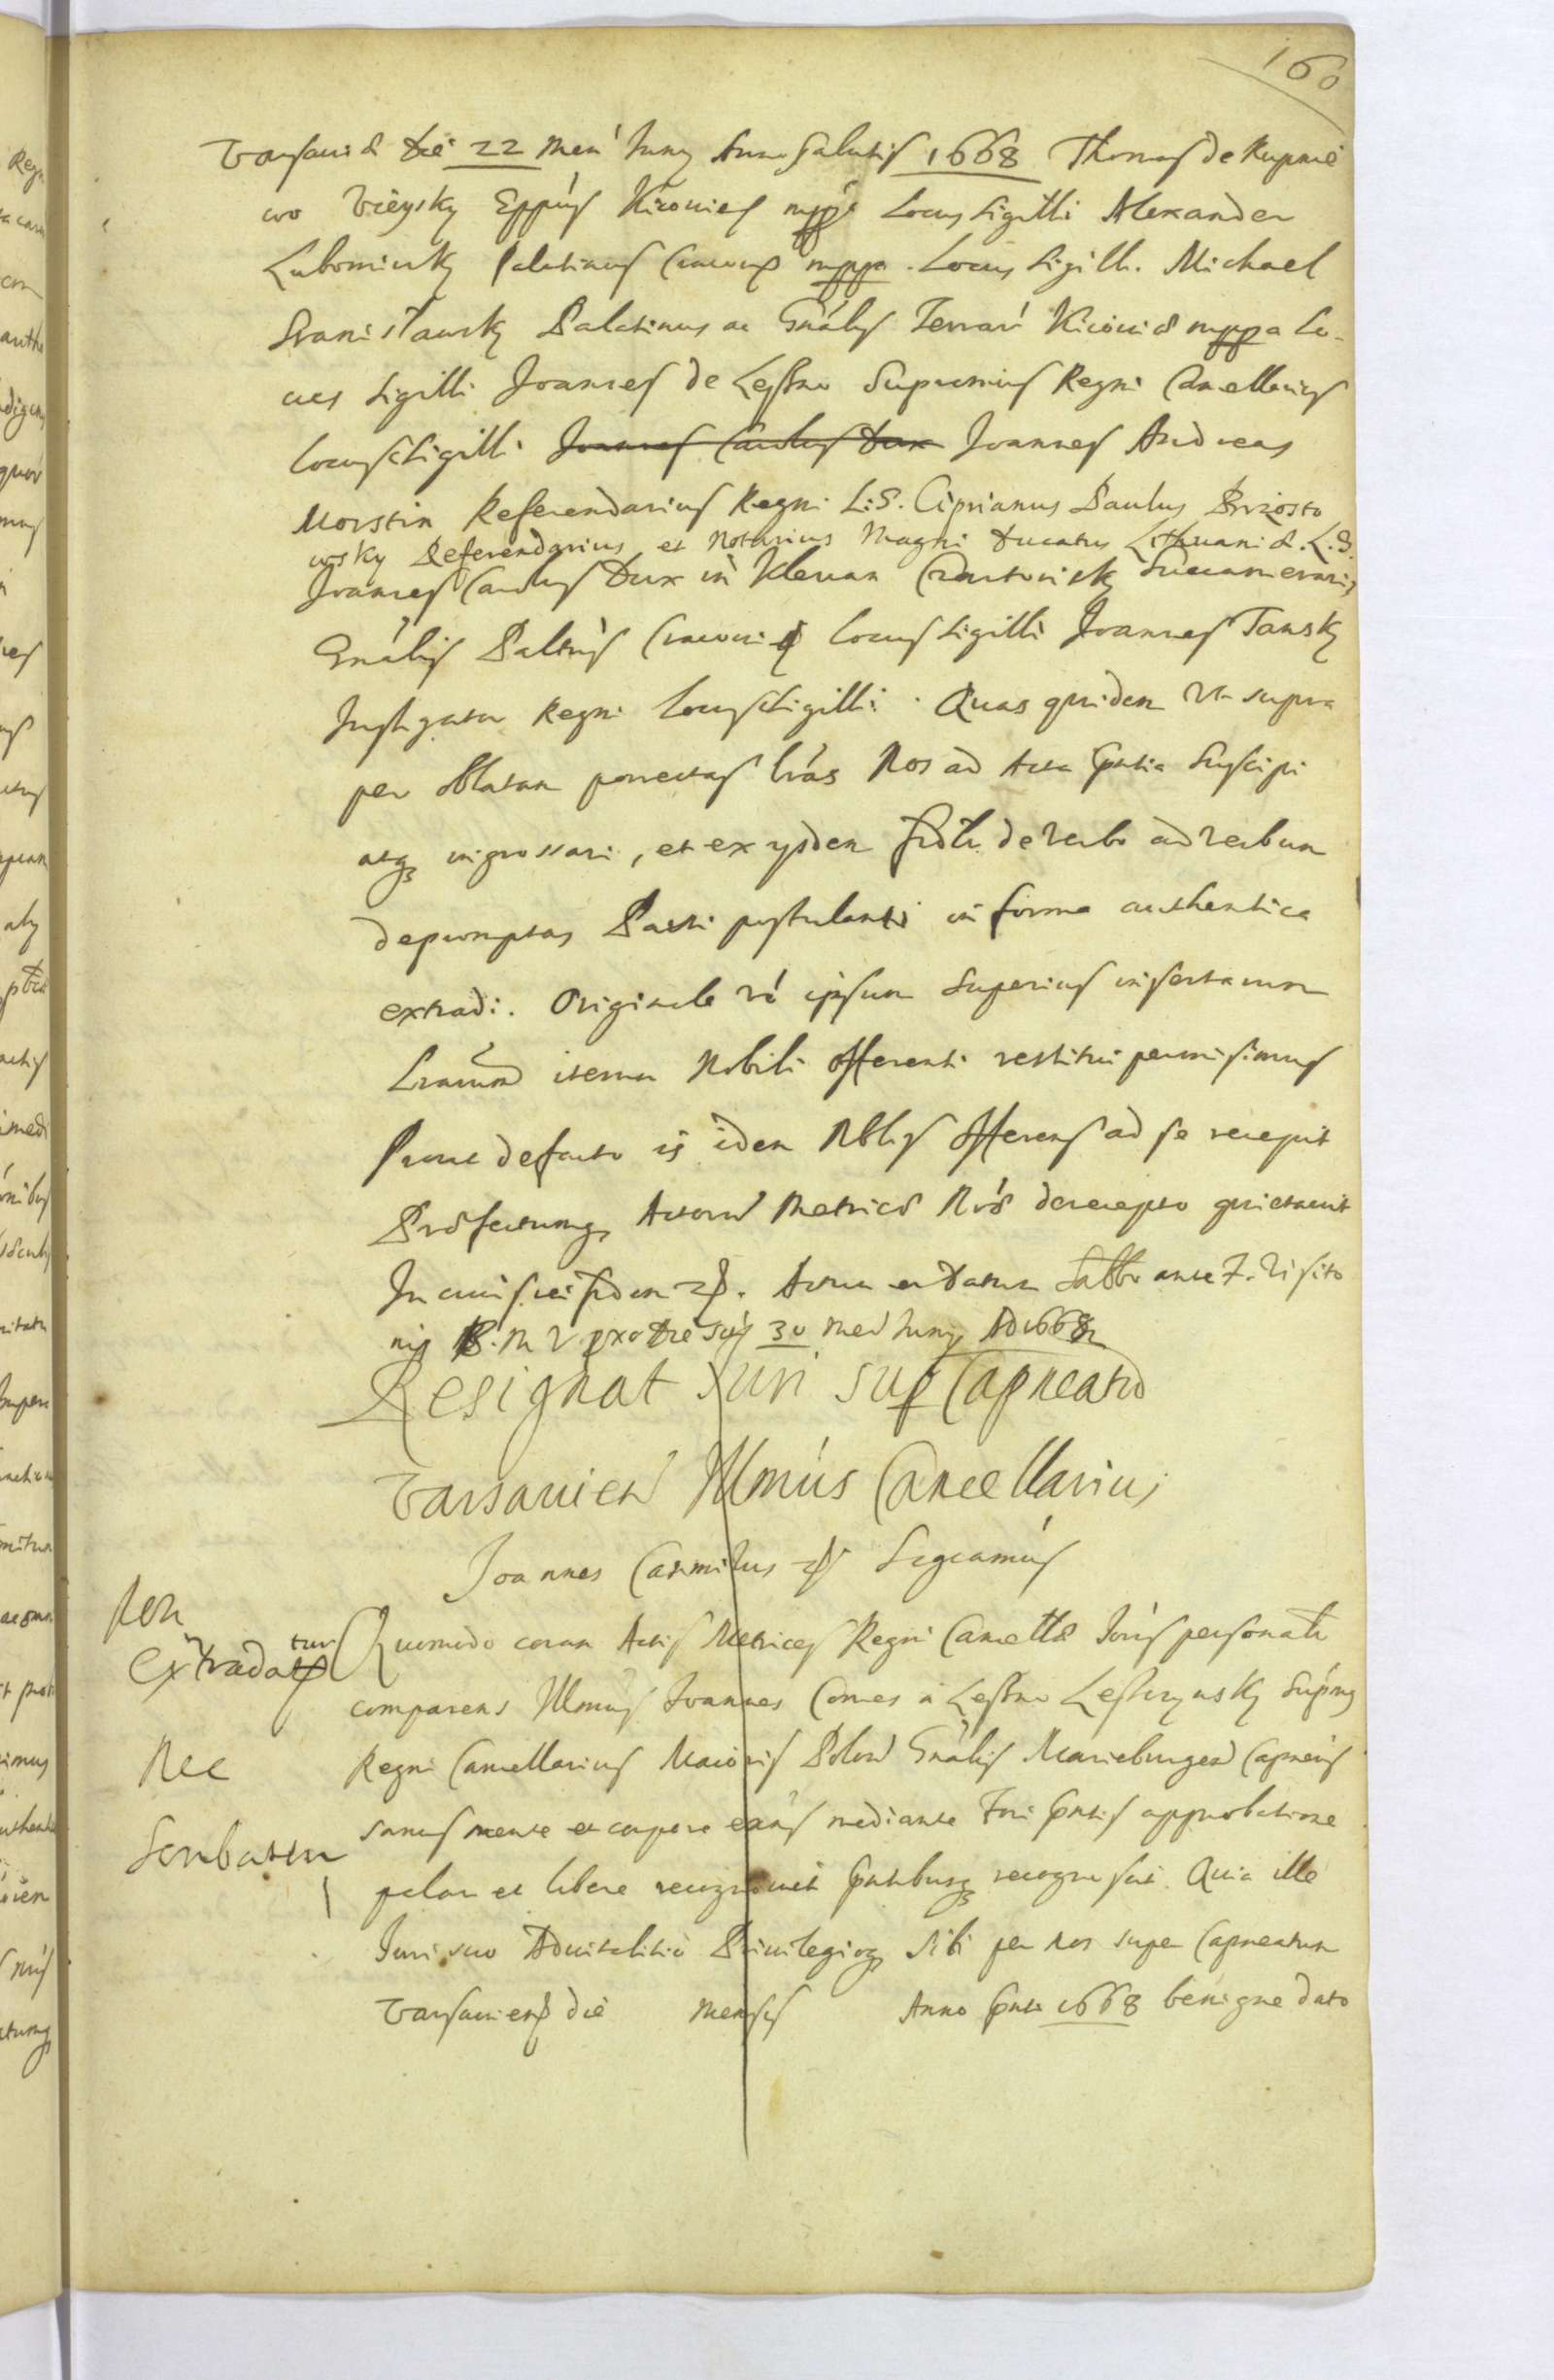 160
Varsauiæ die 22 Men Juny Anno Salutis 1668 Thomas de Rupnie
wo Vieysky Eppús Kiiouieñ mppa Locus Sigilli Alexander
Lubomirsky Palatinus Cracouień mppa. Locus Sigilli. Michael
Stanisławsky Palatinus ac Gnális Terrarú Kiiouiæ mppa Lo-
cus Sigilli Joannes de Leszno Supremus Regni Cancellarius
locus Sigilli Joannes Carolus Dux Joannes Andreas
Morstin Referendarius Regni L:S. Ciprianus Paulus Brzosto
wsky Referendarius et Notarius Magni Ducatus Lithuaniæ. L.S.
Joannes Carolus Dux in Klewan Czartorisky Succamerarius
Gnális Paltús Cracouien locus Sigilli Joannes Tansky
Instigator Regni Locus Sigilli. Quas quidem Vt supra
per oblatam porrectas lrás Nos ad Acta pntia Suscipi
atq ingrossari, et ex ijsdem fidlr de verbo ad verbum
depromptas Parti postulanti in forma authentica
extradi. Originale vó ipsum Superius insertarum
Lrarum iterum Nobili offerenti restitui permisimus
Prout de facto is idem Nblis offerens ad se recepit
Præfectumq Actorum Metrices Nrós de recepto quietauit
In cuius rei fidem zp. Actum et Datum Sabbo ante F. Visito
nis B. M V pxo die scis 30 men Juny AD 1668
Resignat Juri sup Capneatū
Varsauien Illmús Cancellarius
Joannes Casimirus zp Sigcamús
Non
extradatp
tur
Nec
Scribatur
Quomodo coram Actis Metrices Regni Cancellæ Nris personalr
comparens Illmús Joannes Comes à Leszno Leszczynsky Suprmus
Regni Cancellarius Maioris Polon Gnális Marieburgen Capneus
sanus mente et corpore exńs mediante Fori pntis approbatione
palam et libere recognouit pntibusq recognoscit. Quia ille
Juri suo Aduitalitio Priuilegioq Sibi per Nos super Capneatum
Varsauien die mensis Anno pnti 1668 benigne dato